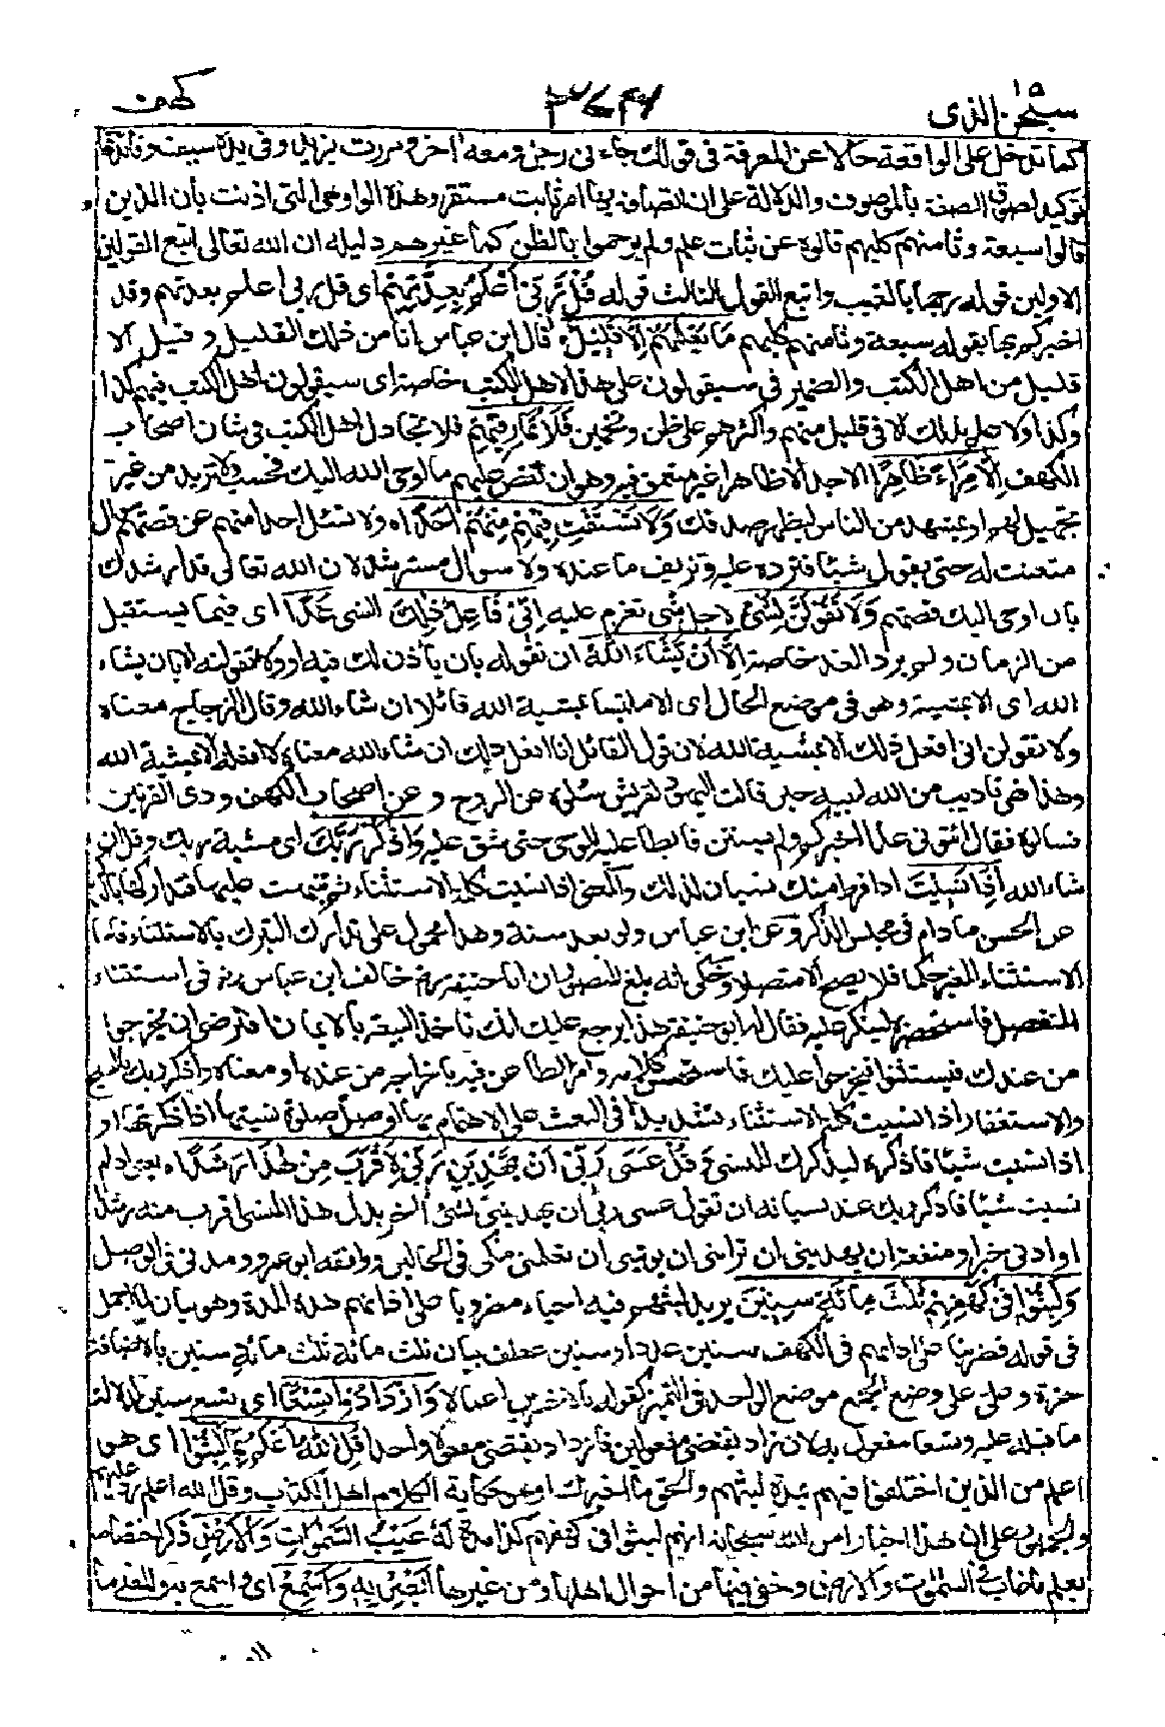 سبحن الذى ١٥
كهف
كما تدخل على الواقعة حالا عن المعرفة فى قولك جاءنى رجل ومعه اخر ومررت بزيد وفى يده سيف وفائدتها
توكيد لصوق الصفة بالموصوف والدلالة على ان اتصافه بها امر ثابت مستقر وهذه الواو هى التى اذنت بأن الذين
قالوا سبعة وثامنهم كلبهم قالوه عن ثبات علم ولم يرجموا بالظن كما غيرهم دليله ان الله تعالى اتبع القولين
الاولين قوله رجما بالغيب واتبع القول الثالث قوله قُلْ رَّبِّىْ اَعْلَمُ بِعِدَّتِهِمْ اى قل ربى اعلم بعدتهم وقد
اخبركم بها بقوله سبعة وثامنهم كلبهم مَا يَعْلَمُهُمْ اِلَّا قَلِيْلٌ قال ابن عباس انا من ذلك القليل وقيل الا
قليل من اهل الكتب والضمير فى سيقولون على هذا لاهل الكتب خاصة اى سيقولون اهل الكتب فيهم كذا
وكذا ولا علم بذلك الا فى قليل منهم واكثرهم على ظن وتخمين فَلَا تُمَارِ فِيْهِمْ فلا تجادل اهل الكتب فى شان اصحاب
الكهف اِلَّا مِرَآءً ظَاهِرًا الا جدالا ظاهرا غير متعمق فيه وهو ان تقص عليهم ما اوحى الله اليك فحسب ولا تزيد من غير
تجهيل لهم او بمشهد من الناس ليظهر صدقك وَلَا تَسْتَفْتِ فِيْهِمْ مِنْهُمْ اَحَدًا ولا تسئل احدا منهم عن قصتهم سوال
متعنت له حتى يقول شيئا فترده عليه وتزيف ما عنده ولا سوال مسترشد لان الله تعالى قد ارشدك
بان اوحى اليك قصتهم وَلَا تَقُوْلَنَّ لِشَىْءٍ لاجل شئ تعزم عليه اِنِّىْ فَاعِلٌ ذٰلِكَ الشئ غَدًا اى فيما يستقبل
من الزمان ولم يرد الغد خاصة اِلَّا اَنْ يَّشَآءَ اللّٰهُ ان تقوله بان ياذن لك فيه او ولا تقولنه الا بان يشاء
الله اى الا بمشيته وهو فى موضع الحال اى الا ملتبسا بمشية الله قائلا ان شاء الله وقال الزجاج معناه
ولا تقولن انى افعل ذلك الا بمشية الله لان قول القائل انا افعل ذلك ان شاء الله معناه لا افعله الا بمشية الله
وهذا نهى تاديب من الله لنبيه حين قالت اليهود لقريش سلوه عن الروح وعن اصحاب الكهف وذى القرنين
فسالوه فقال ائتونى غدا اخبركم ولم يستثن فابطا عليه الوحى حتى شق عليه وَاذْكُرْ رَّبَّكَ اى مشية ربك وقل ان
شاء الله اِذَا نَسِيْتَ اذا فرط منك نسيان لذلك والمعنى اذا نسيت كلمة الاستثناء ثم تنبهت عليها فتداركها بالذكر
عن الحسن ما دام فى مجلس الذكر وعن ابن عباس ولو بعد سنة وهذا محمول على تدارك التبرك بالاستثناء فاما
الاستثناء المغير حكما فلا يصح الا متصلا وحكى انه بلغ المنصور ان ابا حنيفة رح خالف ابن عباس رض فى استثناء
المنفصل فاستحضره لينكر عليه فقال له ابو حنيفة هذا يرجع عليك انك تاخذ البيعة بالايمان افترضى ان يخرجوا
من عندك فيستثنوا فيخرجوا عليك فاستحسن كلامه وامر الطاعن فيه باخراجه من عنده او معناه واذكر ربك بالتسبيح
والاستغفار اذا نسيت كلمة الاستثناء تشديدا فى البعث على الاهتمام بها او صل صلوة نسيتها اذا ذكرتها او
اذا نسيت شيئا فاذكره ليذكرك المنسى وَقُلْ عَسٰى رَبِّىْ اَنْ يَّهْدِيَنِ رَبِّىْ لِاَقْرَبَ مِنْ هٰذَا رَشَدًا يعنى اذا
نسيت شيئا فاذكر ربك عند نسيانه ان تقول عسى ربى ان يهدينى لشئ اخر بدل هذا المنسى اقرب منه رشدا
او ادنى خيرا ومنفعة ان يهدينى ان ترنى ان يؤتينى ان تعلمنى مكى فى الحالين ووافقه ابو عمرو ومدنى فى الوصل
وَلَبِثُوْا فِىْ كَهْفِهِمْ ثَلٰثَ مِائَةٍ سِنِيْنَ يريد لبثهم فيه احياء مضروبا على اذانهم هذه المدة وهو بيان لما اجمل
فى قوله فضربنا على اذانهم فى الكهف سنين عددا وسنين عطف بيان لثلث مائة ثلث مائة سنين بالاضافة
حمزة وعلى على وضع الجمع موضع الواحد فى التميز كقوله بالاخسرين اعمالا وَازْدَادُوْا تِسْعًا اى تسع سنين لدلالة
ما قبله عليه وتسعا مفعول به لان زاد يقتضى مفعولين فازداد يقتضى مفعولا واحدا قُلِ اللّٰهُ اَعْلَمُ بِمَا لَبِثُوْا اى هو
اعلم من الذين اختلفوا فيهم بمدة لبثهم والحق ما اخبرك او هو حكاية لكلام اهل الكتاب وقل الله اعلم رد عليهم
والجمهور على ان هذا اخبار من الله سبحانه انهم لبثوا فى كهفهم كذا مدة لَهٗ غَيْبُ السَّمٰوٰتِ وَالْاَرْضِ ذكر اختصاصه
بعلم ما غاب فى السموات والارض وخفى فيها من احوال اهلها ومن غيرها اَبْصِرْ بِهٖ وَاَسْمِعْ اى واسمع به والمعنى ما